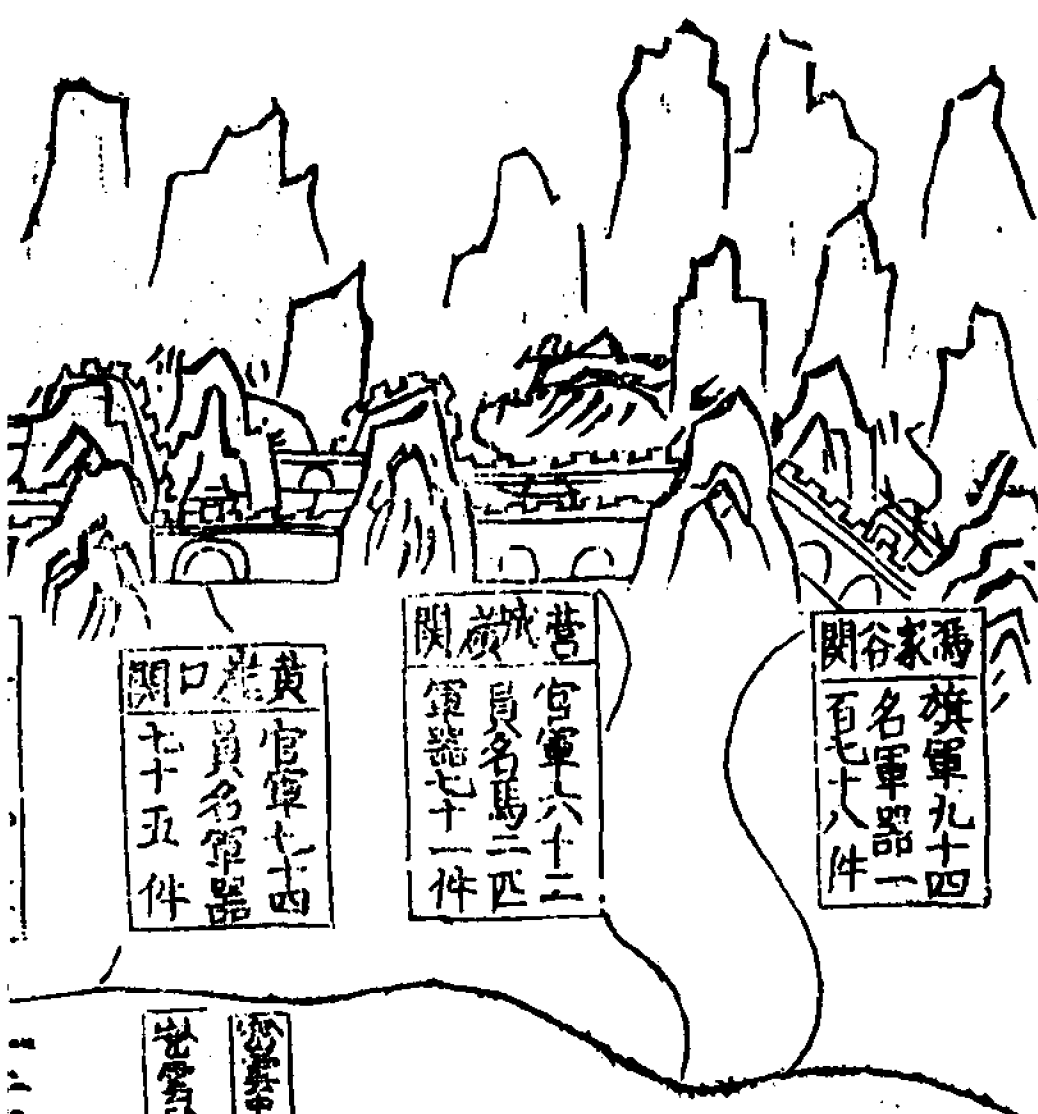 馮家谷關
旗軍九十四
名軍器一
百七十八件
營城嶺關
官軍六十二
員名馬三匹
軍器七十一件
黃崖口關
官軍七十四
員名軍器
七十五件